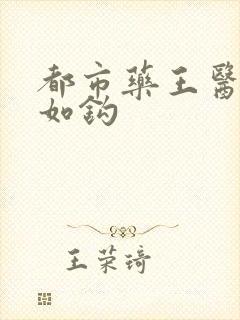 都市藥王醫
如鈎
王荣琦